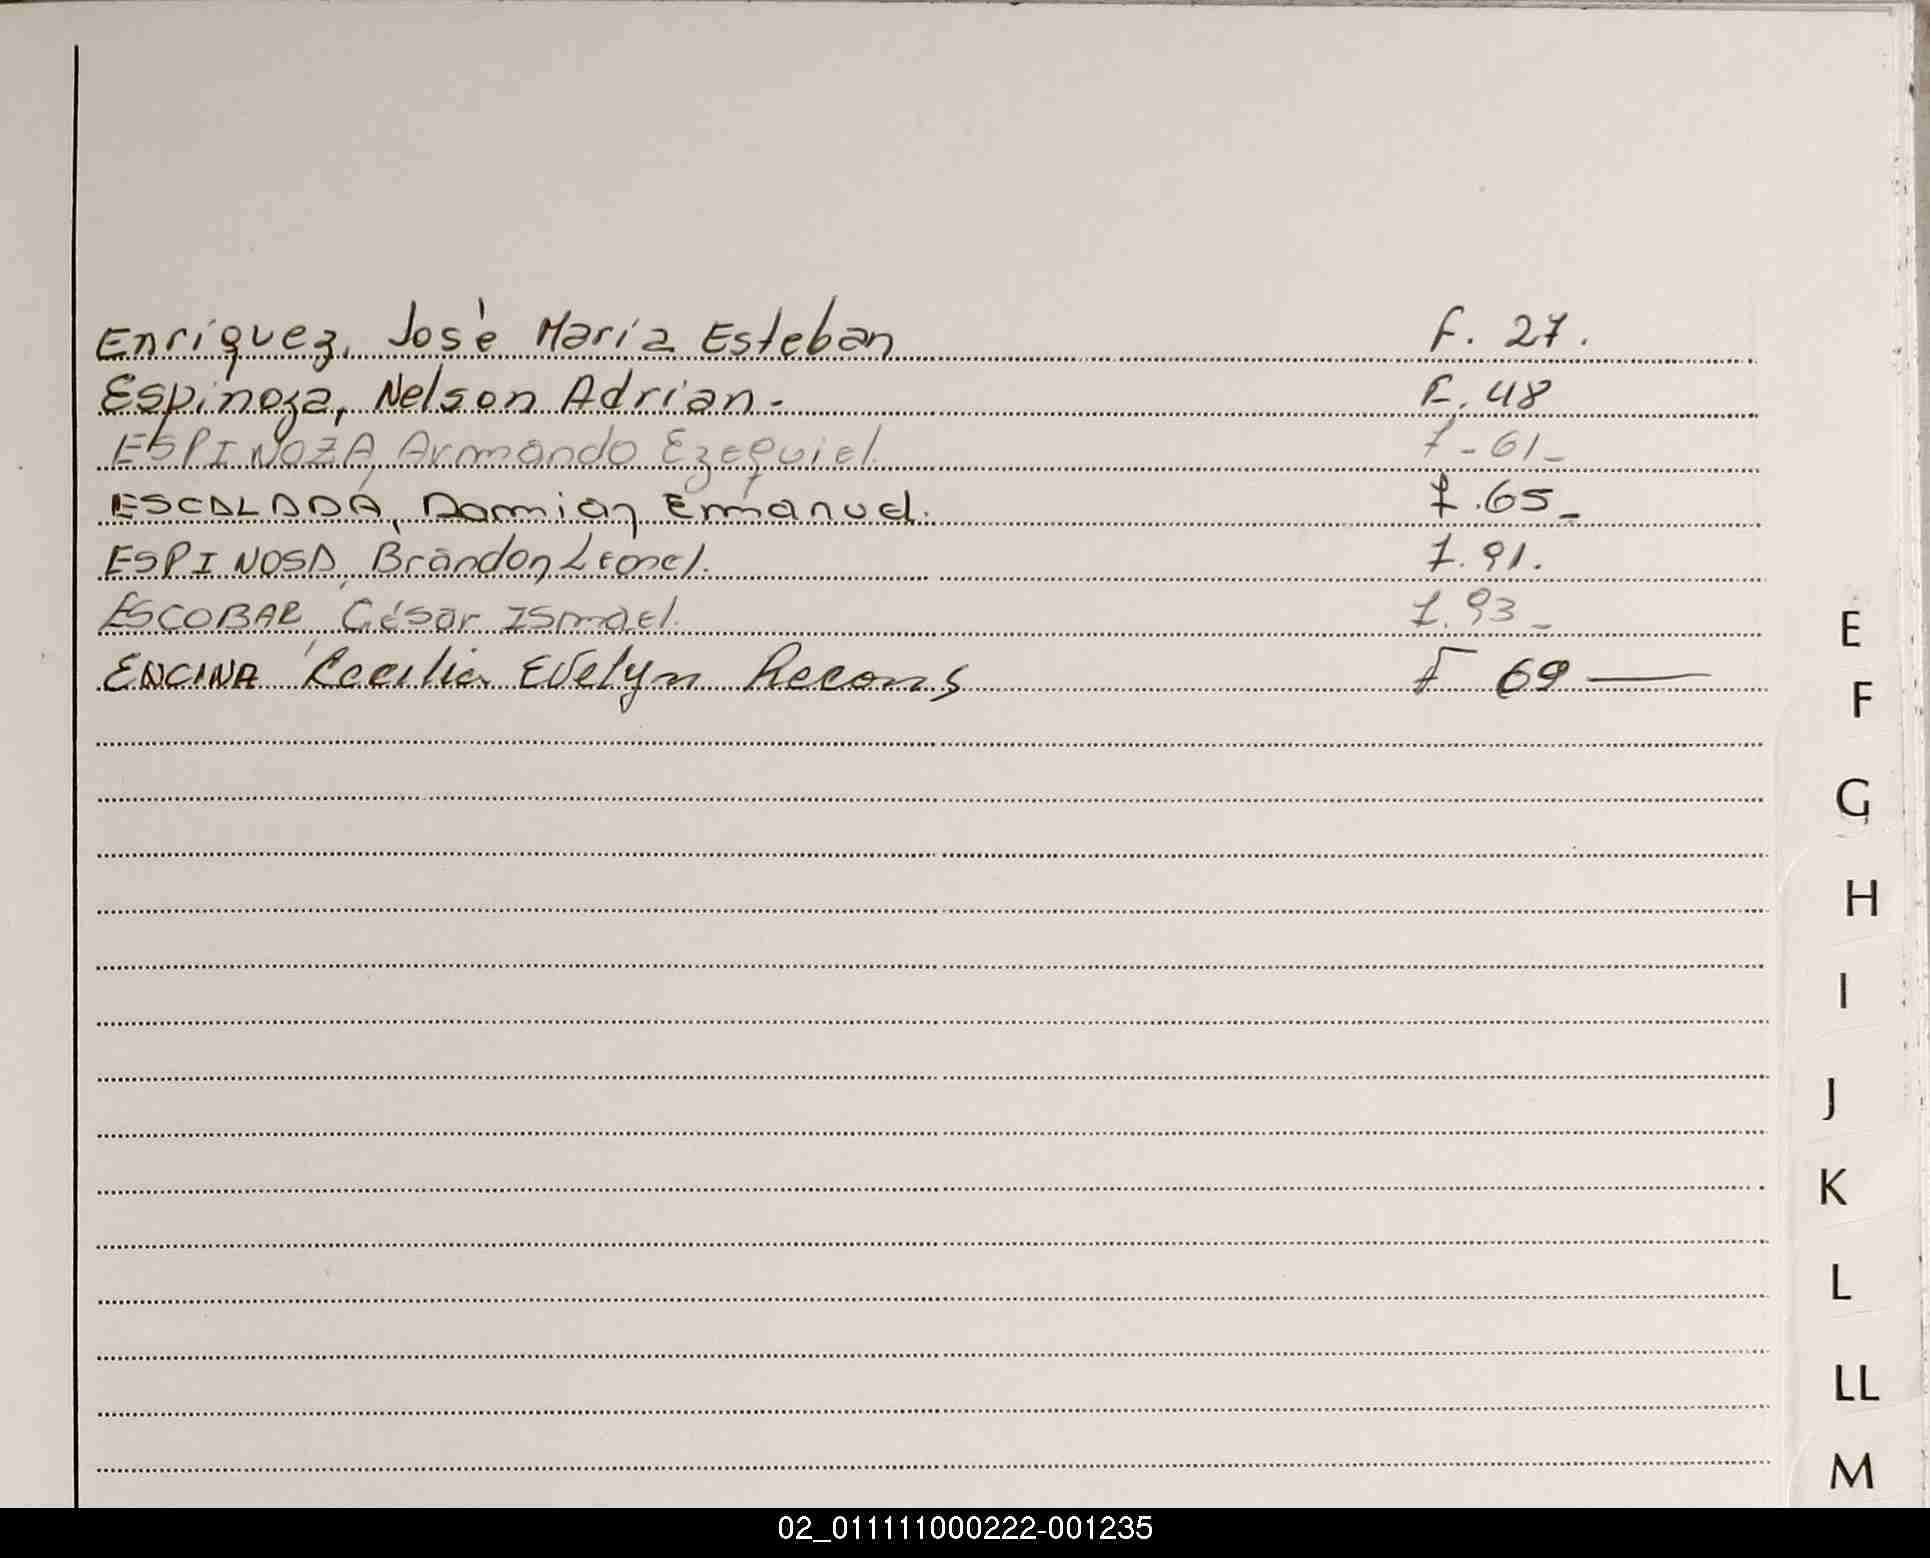 Enriquez, José María Esteban F. 27.
Espinoza, Nelson Adrian. F. 48
ESPINOZA, Armando Ezequiel. f - 61-
ESCALADA, Damian Emanuel. f. 65-
ESPINOSA, Brandon Leonel. f. 91.
ESCOBAR, César Ismael. f. 93-
ENCINA Cecilia Evelyn Recons F 69—
E
F
G
H
I
J
K
L
LL
M
02_011111000222-001235